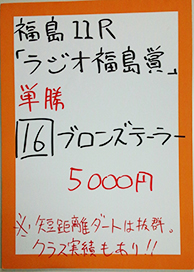 福島11R
「ラジオ福島賞」
単勝
16 ブロンズテーラー
5000円
※短距離ダートは抜群。
クラス実績もあり!!